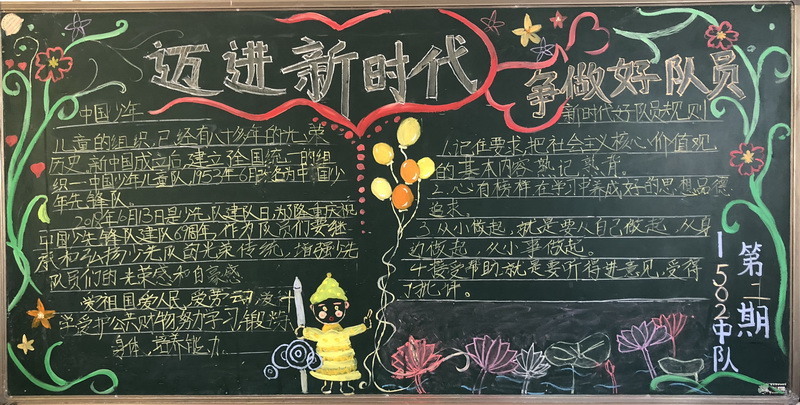 迈进新时代
争做好队员
中国少年
儿童的组织,已经有八十多年的光荣
历史,新中国成立后,建立了全国统一的组
织—中国少年儿童队,1953年6月改名为中国少
年先锋队。
月13日是少先队建队日,为隆重庆祝
中国少先锋队建队69周年,作为队员们要继
承和弘扬少先队的光荣传统,增强少先
队员们的光荣感和自豪感
爱祖国爱人民,爱劳动,爱科
学爱护公共财物努力学习,锻炼
身体,培养能力
新时代好队员规则
1.记住要求,把社会主义核心价值观
的基本内容熟记熟背。
2.心有榜样在学习中养成好的思想品德
追求。
3.从小做起,就是要从自己做起,从身
边做起,从小事做起。
4.接受帮助,就是要听得进意见,受得
了批评。
第二期
1502中队